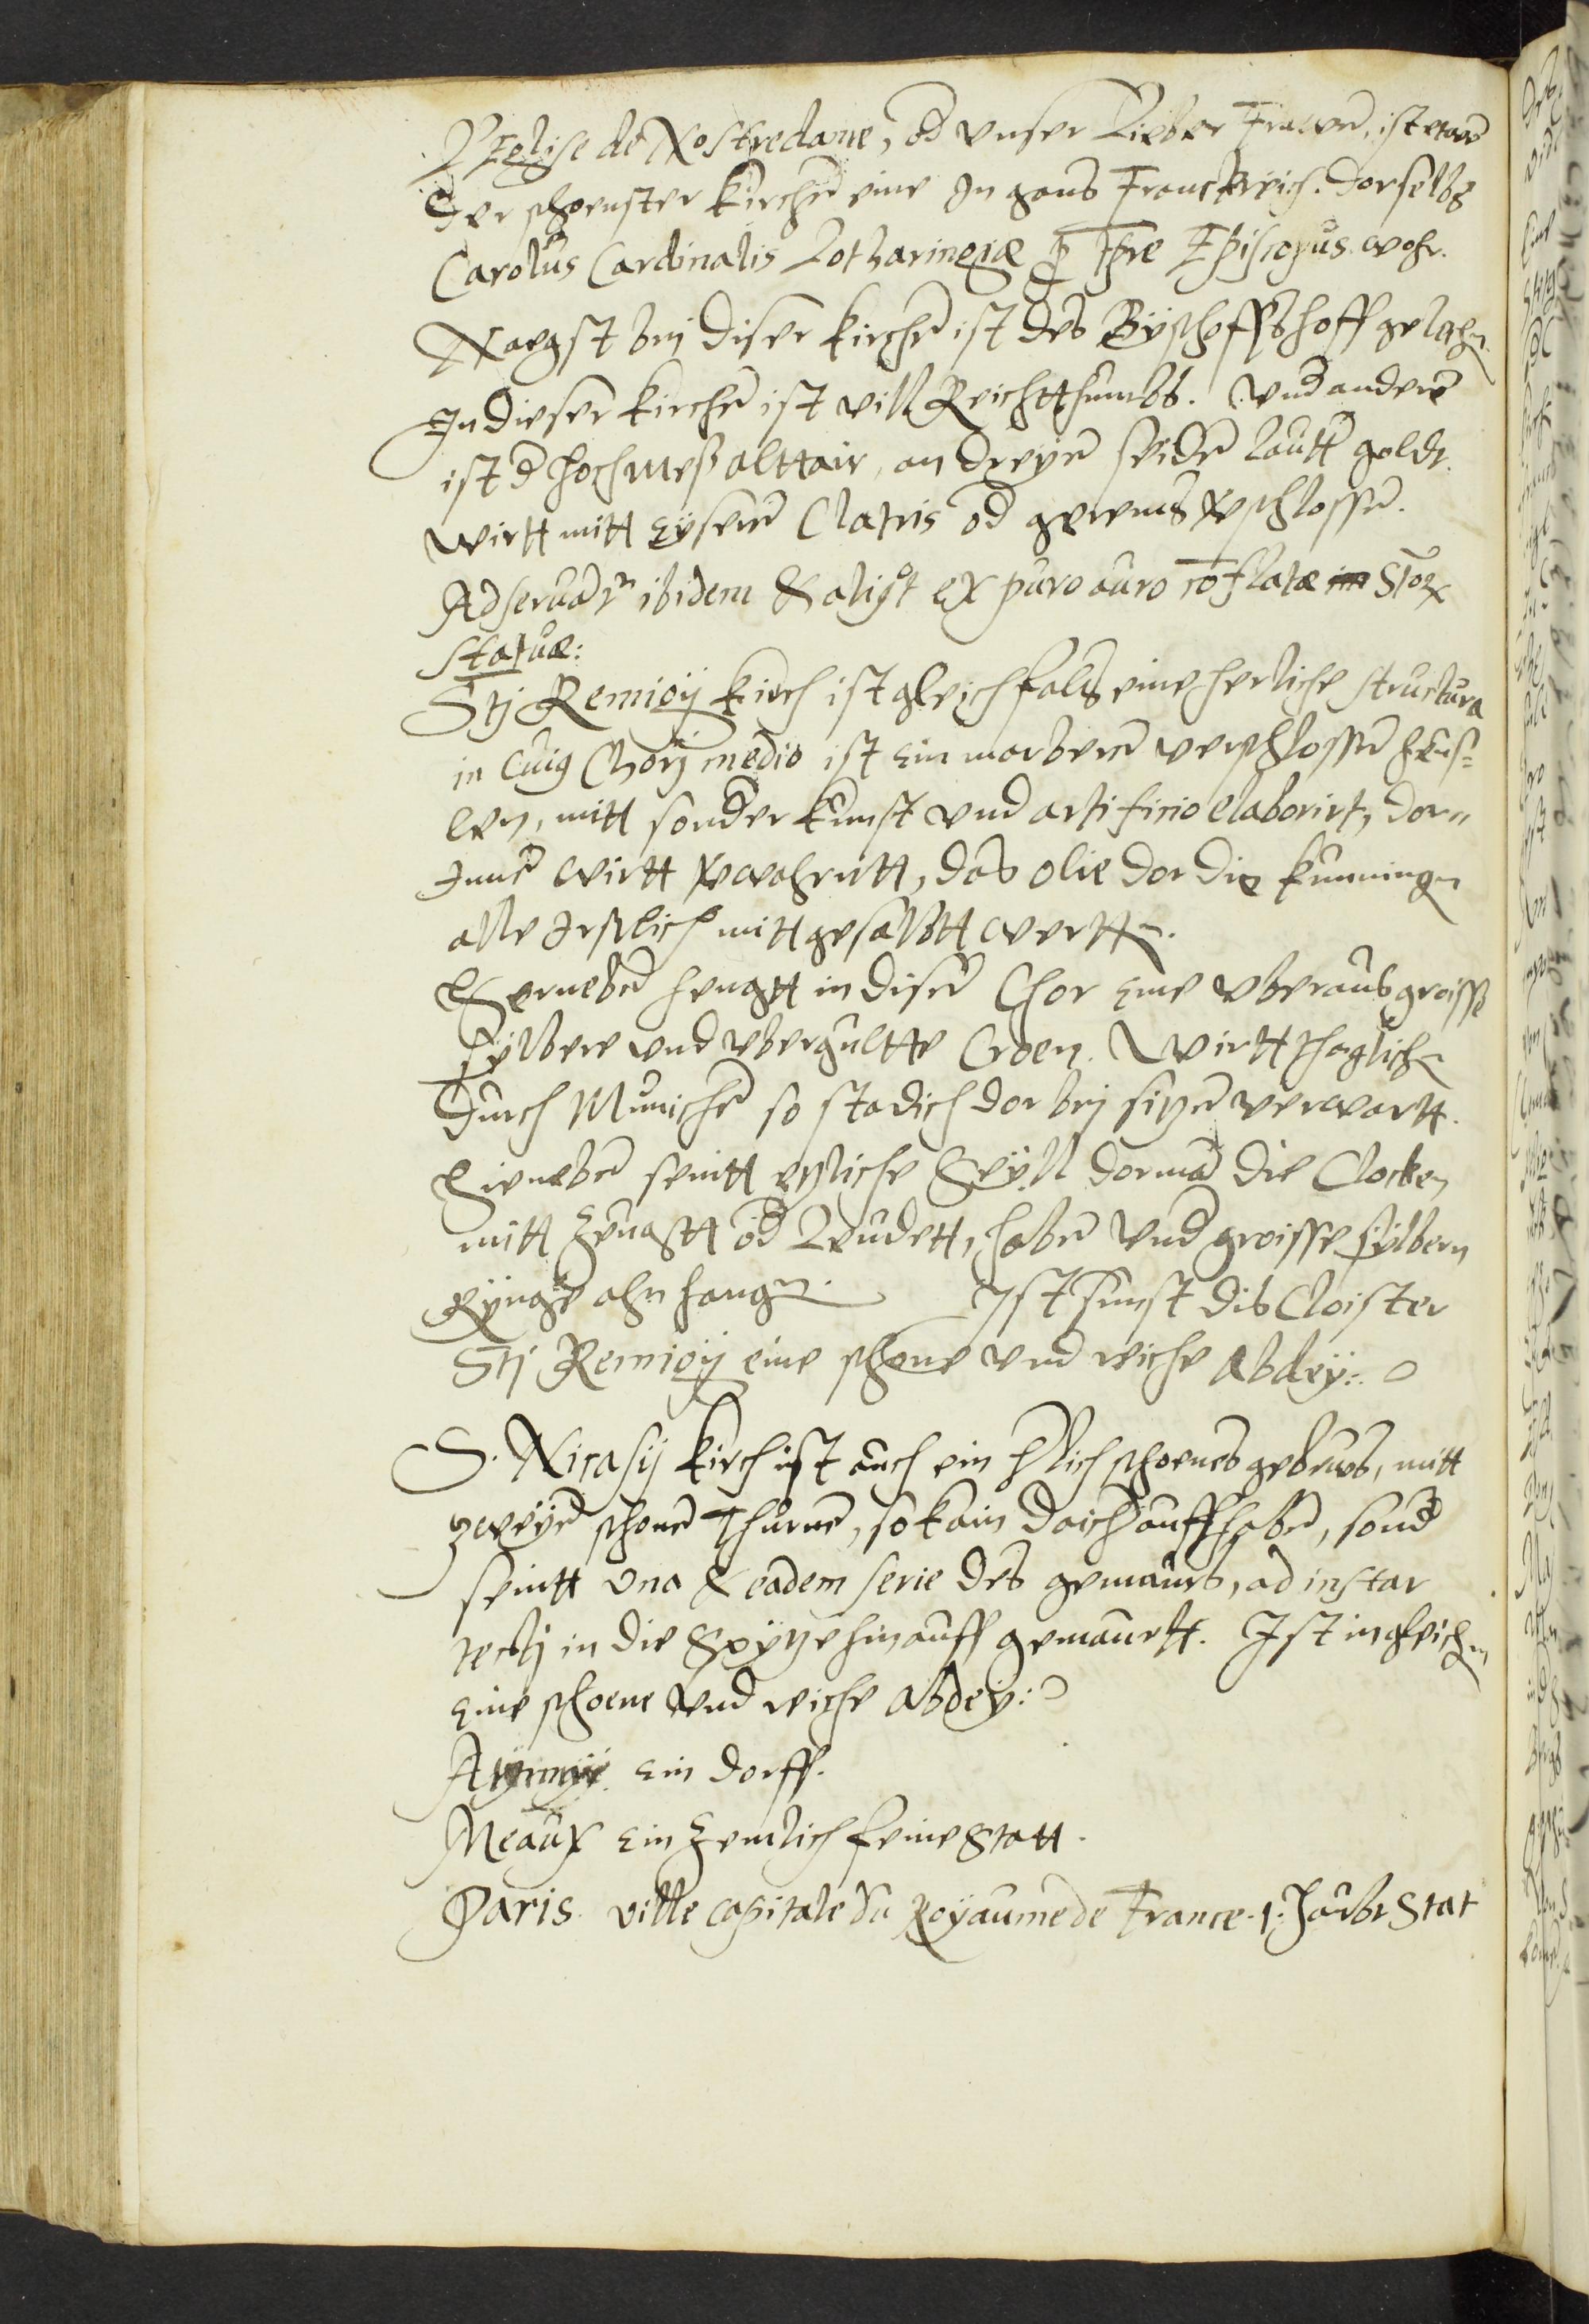 L'Eglise de Nostredame, od unser Lieber Frawen, ist
der schoenster kirchen eine In gans Franckreich. dorselbs
Carolus Cardinalis Lotharingiæ Episcopus wohr.
Naegst bij diser kirchen ist des Byschoffshoff gelegen.
In dieser kirchen ist vill Reichtthumbs. Und anderen
ist d hochmeß alttair, an dreyen seiden lautt goldt.
wirtt mitt Eyseren Clatris od gerems verschlossen.
Adservatur ibidem & aliquot ex puro auro coflatæ Storum
statuæ:
Stj Remigij kirch ist gleichfals eine herliche structura
in cuius Chorj medio ist ein marberen verschlossen heus=
len, mitt sonder kunst und artificio elaborirt, dor=
Innen wirtt verwahrett, das olie dor die kunningen
alle Erstlich mitt gesalbtt wertten.
Herneben hengtt in disem Chor eine uberaus groisse
sylbere und ubergultte Croen. Wirtt thaglichen
durch Munichen so stadich dorbij sitzen verwartt.
Hieneben seintt etzliche Seyll dorman die Clocken
mitt od Leudett, haben und groisse sylberen
Rynge ahn hangen. Ist sunst dis Cloister
Stj Remigij eine schone und riche Abdey:
S. Nicasij kirch ist auch ein herlich schoenes gebews, mitt
zweyen schonen Thurnen, so kain daich auff haben, sond
seintt una & eadem serie des gemaurs, ad instar
tecti in die Spytze hinauff gemaurtt. Ist ingleichen
Eine schoene und riche abdey:
ein dorff.
Meaux ein Zemlich feine Statt.
Paris. ville capitale du Royaume de France. Haubt Stat